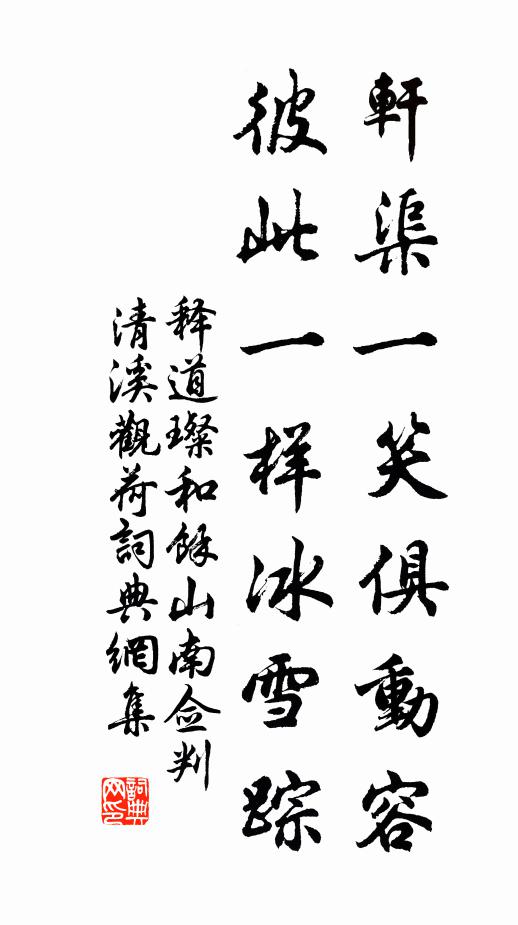 軒渠一笑俱動容
彼此一样冰雪踪
释道璨和馀山南佥判
清溪觀荷詞典網集
詞典网印